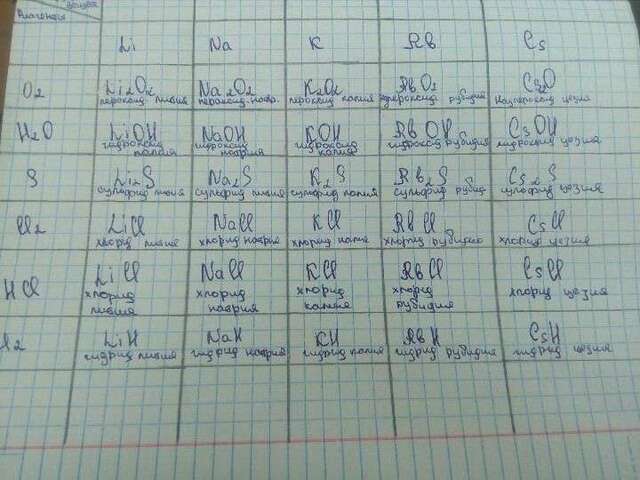 Реагенты
Li Na K Rb Cs
O2 Li2O2 Na2O2 K2O2 RbO2 Cs2O
пероксид лития пероксид натр. пероксид калия рубидия цезия
H2O LiOH NaOH KOH RbOH CsOH
гидроксид гидроксид гидроксид гидроксид рубидия гидроксид цезия
натрия калия
S Li2S Na2S K2S Rb2S Cs2S
сульфид лития сульфид лития сульфид калия сульфид рубид сульфид цезия
Cl2 LiCl NaCl KCl RbCl CsCl
хлорид лития хлорид натрия хлорид калия хлорид рубидия хлорид цезия
HCl LiCl NaCl KCl RbCl CsCl
хлорид хлорид хлорид хлорид хлорид цезия
лития натрия калия рубидия
LiH NaH KH RbH CsH
гидрид лития гидрид натрия гидрид калия гидрид рубидия гидрид цезия